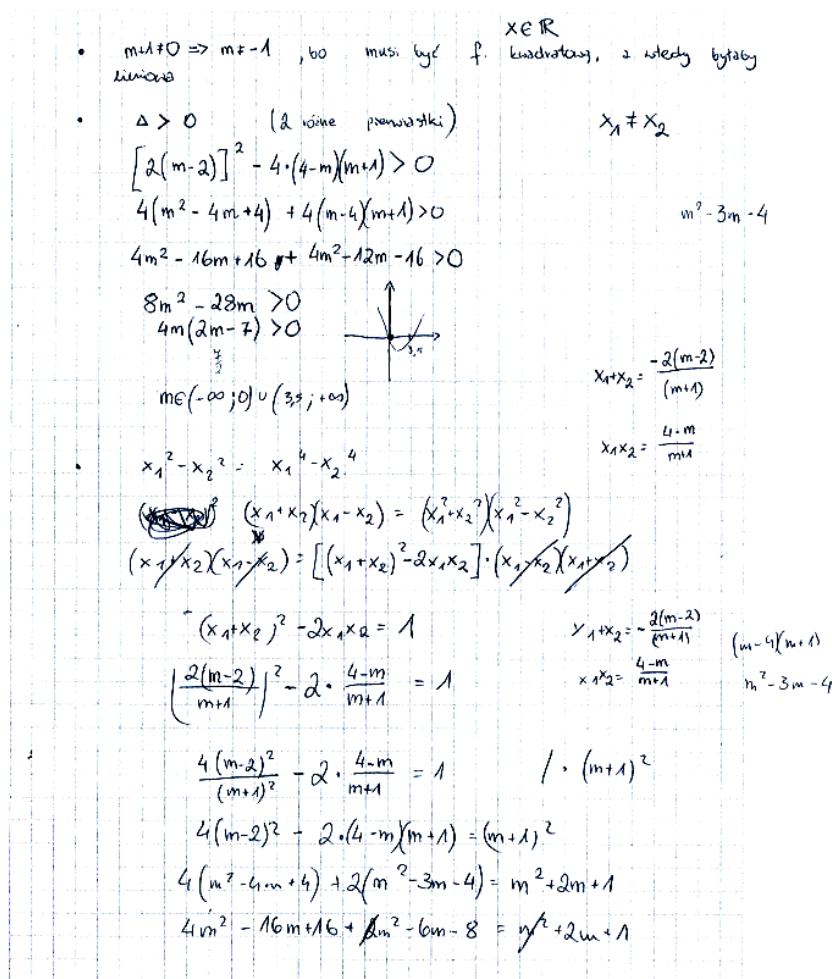 x∈ℝ
• m+1≠0 => m≠-1 , bo musi być f. kwadratowa, a wtedy byłaby
liniowa
• Δ > 0 (2 różne pierwiastki) x₁ ≠ x₂
[2(m-2)]² - 4·(4-m)(m+1) > 0
4(m² - 4m+4) + 4(m-4)(m+1) >0 m² - 3m - 4
4m² - 16m+16 + 4m² - 12m - 16 >0
8m² - 28m >0
4m(2m-7) >0
7/2
3,5
x₁+x₂ = -2(m-2)/(m+1)
m∈(-∞;0)∪(3,5;+∞)
x₁x₂ = 4-m/m+1
• x₁² - x₂² = x₁⁴ - x₂⁴
(x₁+x₂)(x₁-x₂) = (x₁²+x₂²)(x₁²-x₂²)
(x₁+x₂)(x₁-x₂) = [(x₁+x₂)² - 2x₁x₂]·(x₁-x₂)(x₁+x₂)
(x₁+x₂)² - 2x₁x₂ = 1 x₁+x₂ = -2(m-2)/(m+1) (m-4)(m+1)
(2(m-2)/m+1)² - 2· 4-m/m+1 = 1 x₁x₂ = 4-m/m+1 m² - 3m - 4
4(m-2)²/(m+1)² - 2· 4-m/m+1 = 1 /·(m+1)²
4(m-2)² - 2·(4-m)(m+1) = (m+1)²
4(m² - 4m+4) + 2(m² - 3m - 4) = m² + 2m + 1
4m² - 16m+16 + 2m² - 6m - 8 = m² + 2m + 1